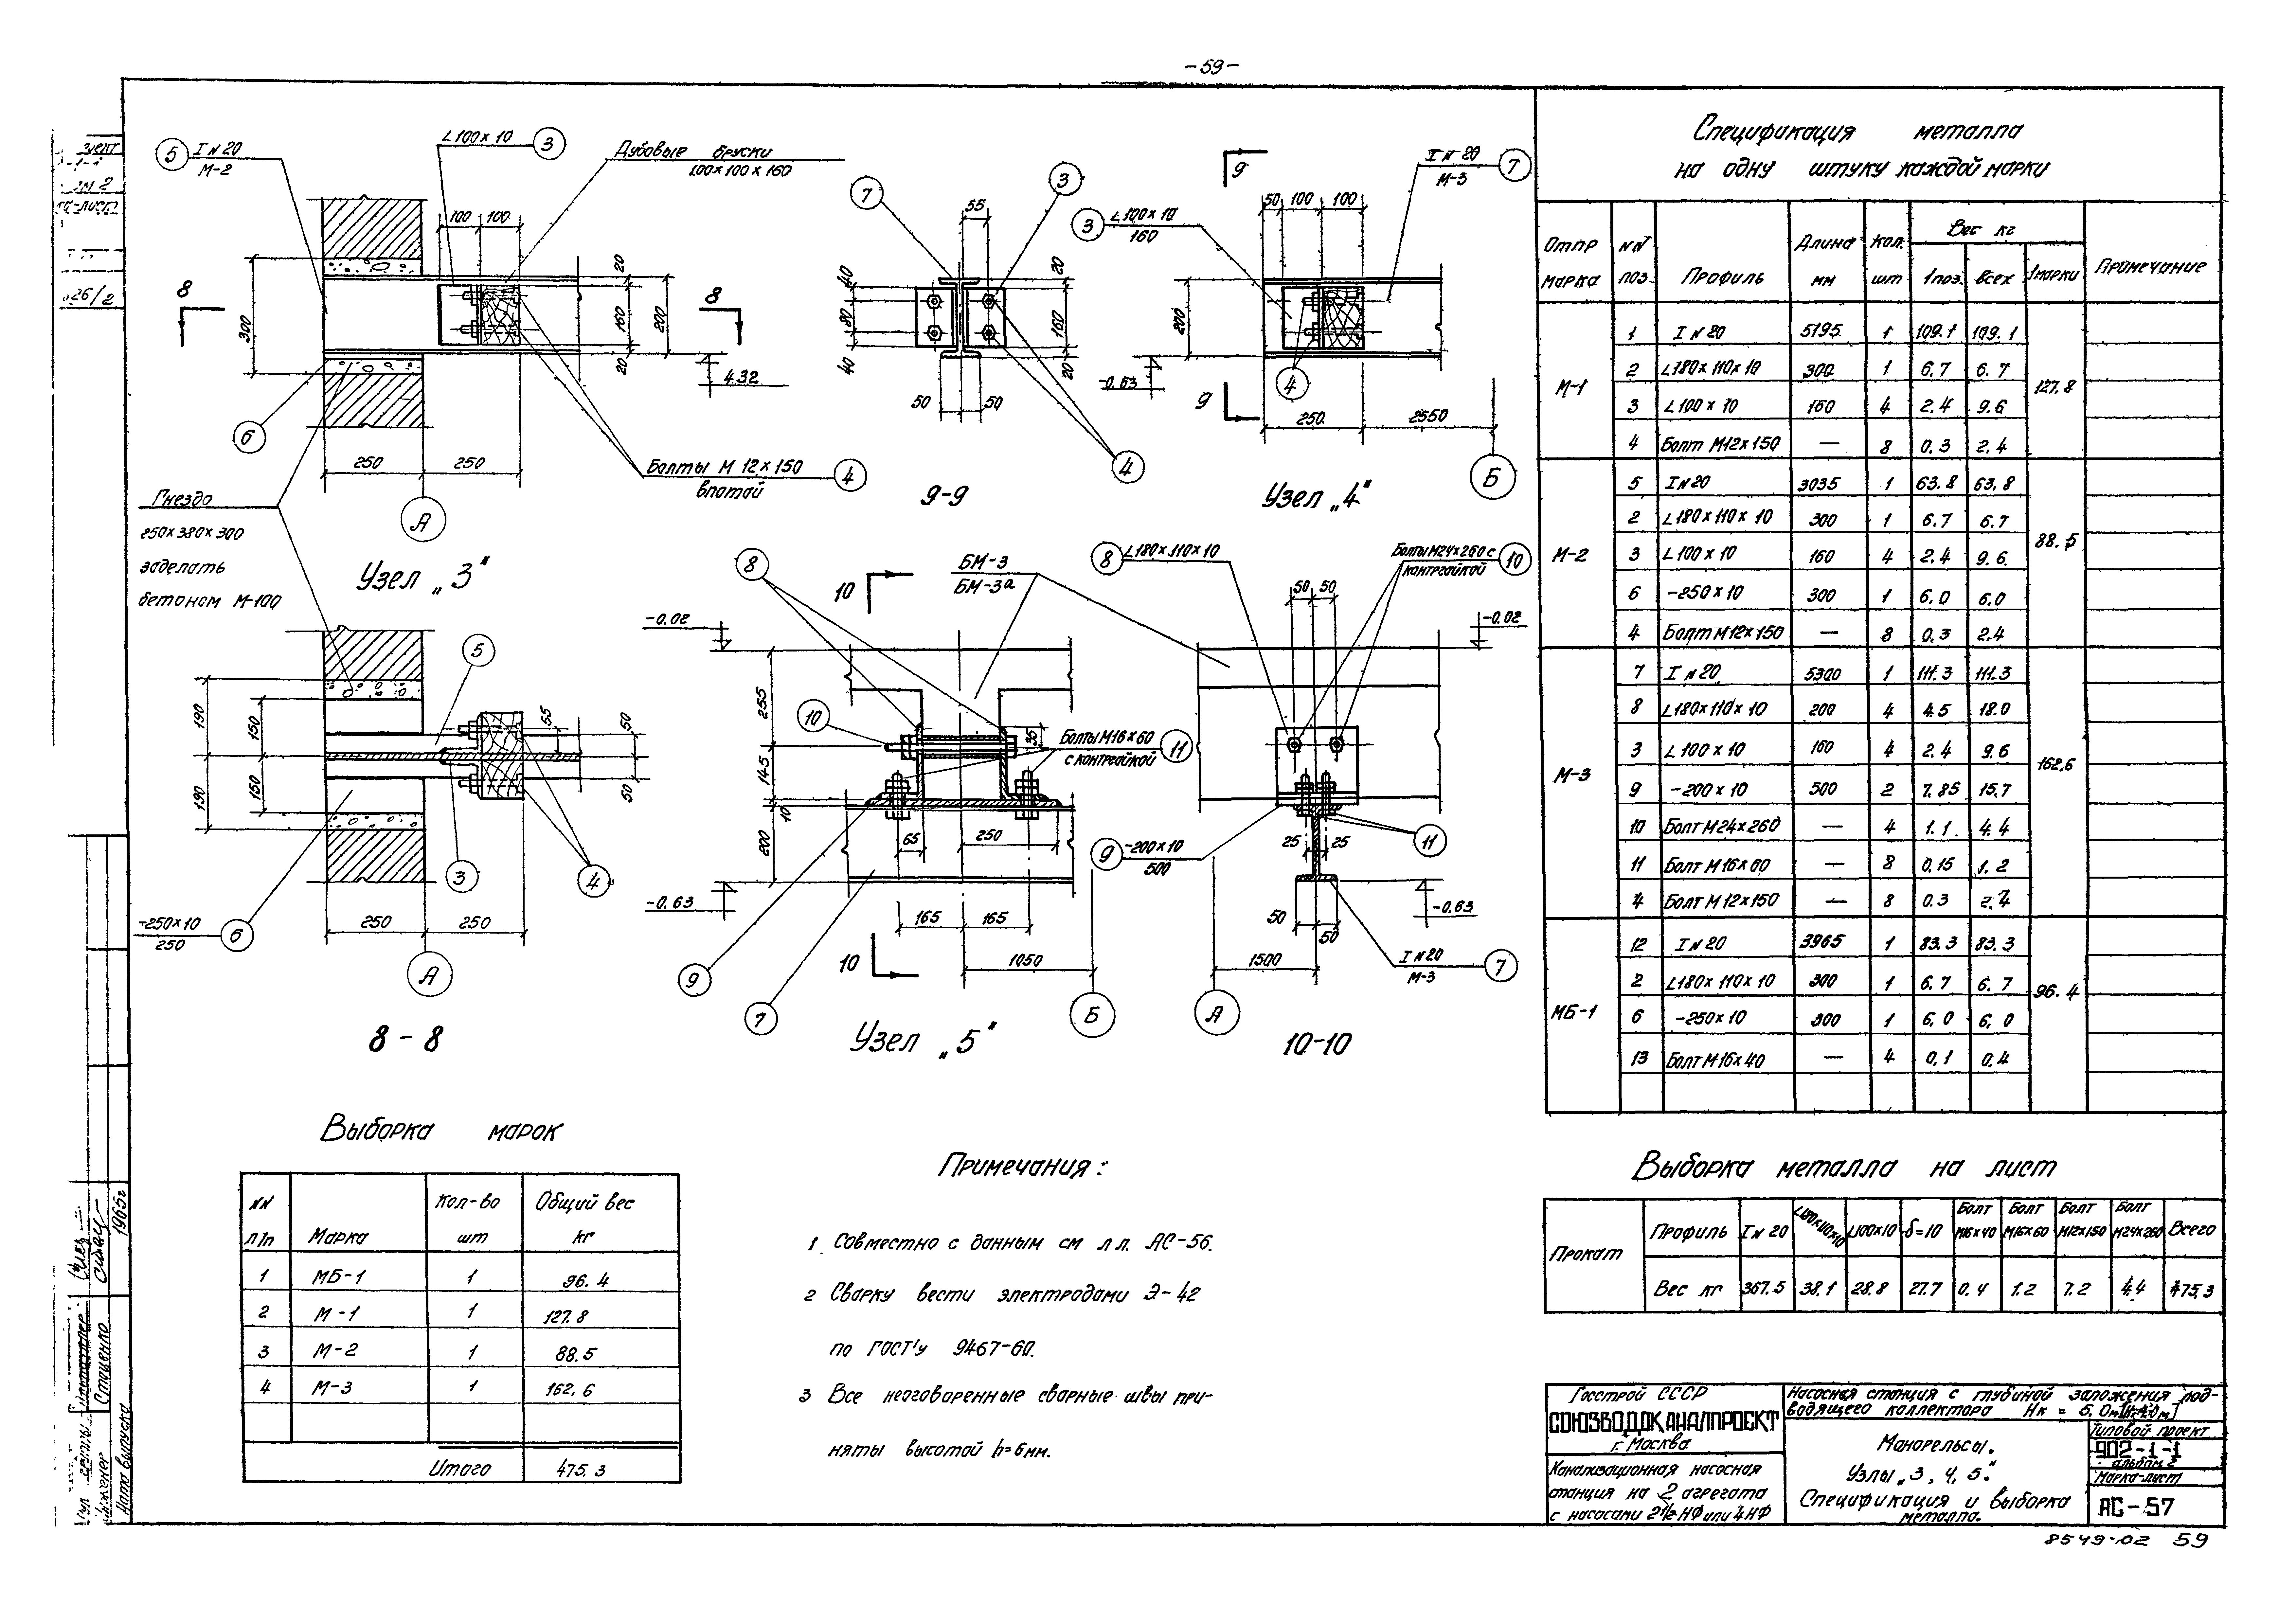 -59-
Узел „3"
5
I N 20
М-2
L100×10
3
Дубовые бруски
100×100×160
100
100
300
20
160
200
20
8
8
4.32
6
250
250
Болты М 12×150
впотай
4
А
Гнездо
250×380×300
заделать
бетоном М-100
9-9
7
3
55
40
80
40
20
160
20
50
50
4
Узел „4"
9
9
3
L100×10
160
50
100
100
I N 20
М-3
7
200
-0.63
4
250
2550
Б
8-8
5
190
150
150
190
55
50
50
3
4
-250×10
250
6
250
250
А
Узел „5"
8
10
БМ-3
БМ-3а
-0.02
255
145
10
200
10
35
Болты М16×60
с контргайкой
11
65
250
-0.63
165
165
1050
9
7
10
Б
10-10
8
L180×110×10
Болты М24×260 с
контргайкой
10
50
50
-0.02
9
-200×10
500
25
25
11
50
50
-0.63
1500
I N 20
М-3
7
А
Спецификация металла
на одну штуку каждой марки
Отпр марка
NN поз.
Профиль
Длина мм
Кол. шт
Вес кг
1 поз.
всех
1 марки
Примечание
М-1
1 I N 20 5195 1 109.1 109.1
2 L180×110×10 300 1 6.7 6.7
127.8
3 L100×10 160 4 2.4 9.6
4 Болт М12×150 — 8 0.3 2.4
М-2
5 I N 20 3035 1 63.8 63.8
2 L180×110×10 300 1 6.7 6.7
88.5
3 L100×10 160 4 2.4 9.6
6 -250×10 300 1 6.0 6.0
4 Болт М12×150 — 8 0.3 2.4
М-3
7 I N 20 5300 1 111.3 111.3
8 L180×110×10 200 4 4.5 18.0
3 L100×10 160 4 2.4 9.6
162.6
9 -200×10 500 2 7.85 15.7
10 Болт М24×260 — 4 1.1 4.4
11 Болт М16×60 — 8 0.15 1.2
4 Болт М12×150 — 8 0.3 2.4
МБ-1
12 I N 20 3965 1 83.3 83.3
2 L180×110×10 300 1 6.7 6.7
96.4
6 -250×10 300 1 6.0 6.0
13 Болт М16×40 — 4 0.1 0.4
Выборка марок
NN п/п
Марка
Кол-во шт
Общий вес кг
1 МБ-1 1 96.4
2 М-1 1 127.8
3 М-2 1 88.5
4 М-3 1 162.6
Итого 475.3
Примечания:
1. Совместно с данным см л л. АС-56.
2 Сварку вести электродами Э-42
по ГОСТ'у 9467-60.
3 Все неоговоренные сварные швы при-
няты высотой h=6мм.
Выборка металла на лист
Прокат
Профиль I N 20 L180×110×10 L100×10 δ=10 Болт М16×40 Болт М16×60 Болт М12×150 Болт М24×260 Всего
Вес кг 367.5 38.1 28.8 27.7 0.4 1.2 7.2 4.4 475.3
Госстрой СССР
СОЮЗВОДОКАНАЛПРОЕКТ
г. Москва
Канализационная насосная
станция на 2 агрегата
с насосами 2½ НФ или 4 НФ
Насосная станция с глубиной заложения под-
водящего коллектора Нк = 5.0м
Монорельсы.
Узлы „3, 4, 5."
Спецификация и выборка
металла.
Типовой проект
902-1-1
альбом 2
Марка-лист
АС-57
8549-02 59
26/2
Инженер
Стоценко
Дата выпуска
1965г